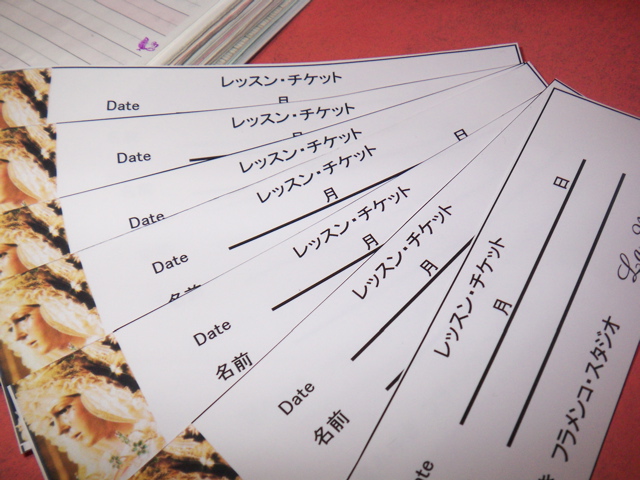 レッスン・チケット
Date 月
レッスン・チケット
Date
レッスン・チケット
Date 日
レッスン・チケット
Date 月
レッスン・チケット
Date 月
名前
レッスン・チケット
Date 月
名前
レッスン・チケット
月 日
フラメンコ・スタジオ